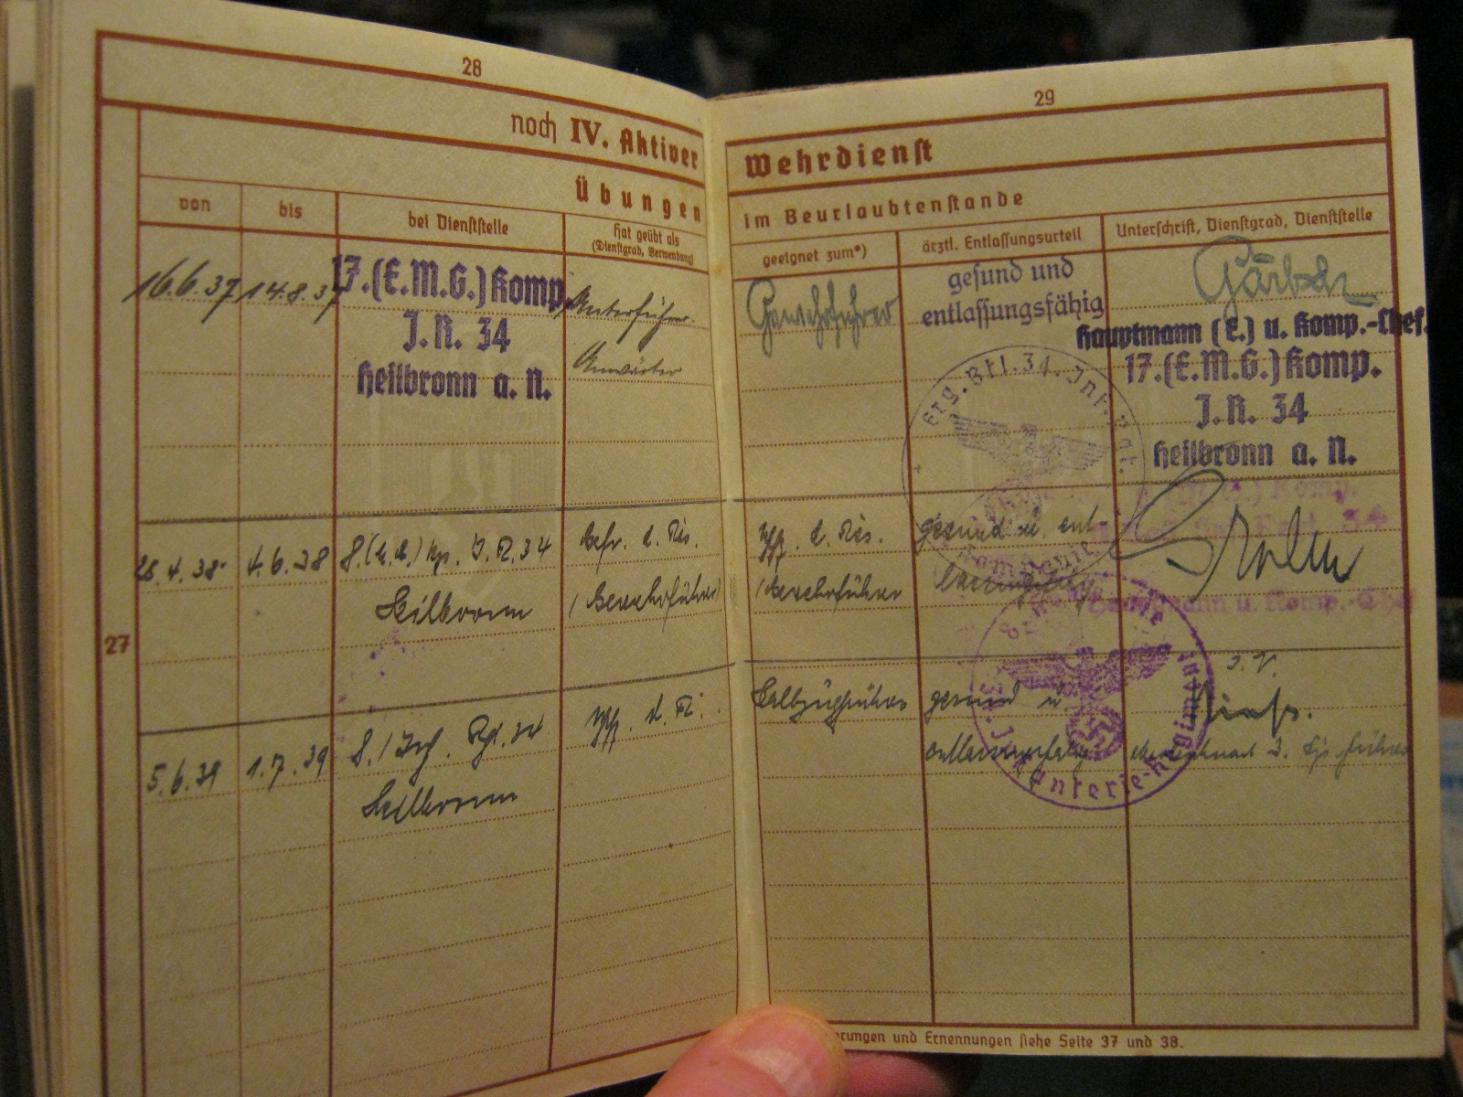 28
noch IV. Aktiver
Übungen
von
bis
bei Dienststelle
Hat geübt als
(Dienstgrad, Verwendung)
16.6.37
14.8.37
17.(E.M.G.) Komp.
J.R. 34
Heilbronn a. N.
Unterführer-
Anwärter
28.4.38
4.6.38
8.(M.G.) Kp. J.R. 34
Heilbronn
Gefr. d. Res.
(Gewehrführer)
27
5.6.39
1.7.39
8./Inf. Rgt. 34
Heilbronn
Uffz. d. R.
29
Wehrdienst
im Beurlaubtenstande
geeignet zum*)
ärztl. Entlassungsurteil
Unterschrift, Dienstgrad, Dienststelle
Gewehrführer
gesund und
entlassungsfähig
Hauptmann (E.) u. Komp.-Chef.
17.(E.M.G.) Komp.
J.R. 34
Heilbronn a. N.
Erg. Btl. 34. Inf. Rgt.
Kompanie
Uffz. d. Res.
Gewehrführer
gesund u. ent-
Hauptmann u. Komp.-Chef
Halbzugführer
gesund u.
entlassungsfähig
J.V.
Infanterie-Regiment
rungen und Ernennungen siehe Seite 37 und 38.